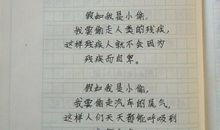 假如我是小偷,
我要偷走人类的残疾,
这样残疾人就不会因为
残疾而自卑。
假如我是小偷,
我要偷走汽车的尾气,
这样人们天天都能呼吸到